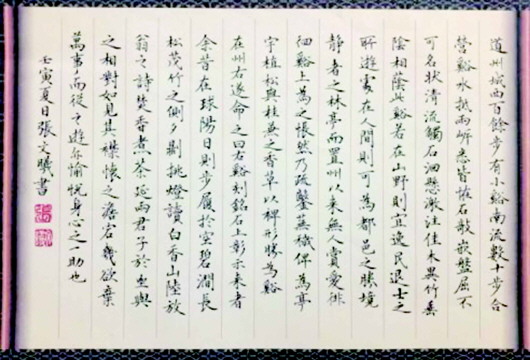 道州城西百餘步有小谿南流數十步合
營谿水抵兩岍悉皆怪石欹嵌盤屈不
可名狀清流觸石洄懸激注佳木異竹垂
陰相蔭此谿若在山野則宜逸民退士之
所遊處在人間則可為都邑之勝境
靜者之林亭而置州以來無人賞愛徘
徊谿上為之悵然乃疏鑿蕪穢俾為亭
宇植松與桂兼之香草以裨形勝為谿
在州右遂命之曰右谿刻銘石上彰示來者
余昔在球陽日則步屧於空碧澗長
松茂竹之側夕則挑燈讀白香山陸放
翁之詩焚香煮茶延兩君子於坐與
之相對如見其襟懷之澹宕幾欲棄
萬事而從之遊亦愉悅身心之一助也
壬寅夏日張文曦書